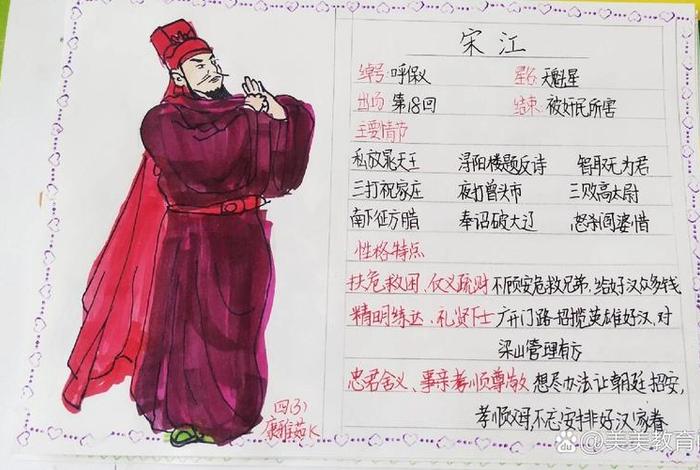 宋江
绰号：呼保义 星名：天魁星
出场：第18回 结束：被奸民所害
主要情节
私放晁天王 浔阳楼题反诗 智取无为军
三打祝家庄 夜打曾头市 三败高太尉
南下征方腊 奉诏破大辽 怒杀阎婆惜
性格特点
扶危救困、仗义疏财 不顾安危救兄弟，给好汉众多钱
精明练达、礼贤下士 广开门路招揽英雄好汉，对
梁山管理有方
忠君舍义、事亲孝顺尊敬 想尽办法让朝廷招安，
孝顺父母，不忘安排好汉家眷
四(3)
康雅茹K
美美教育